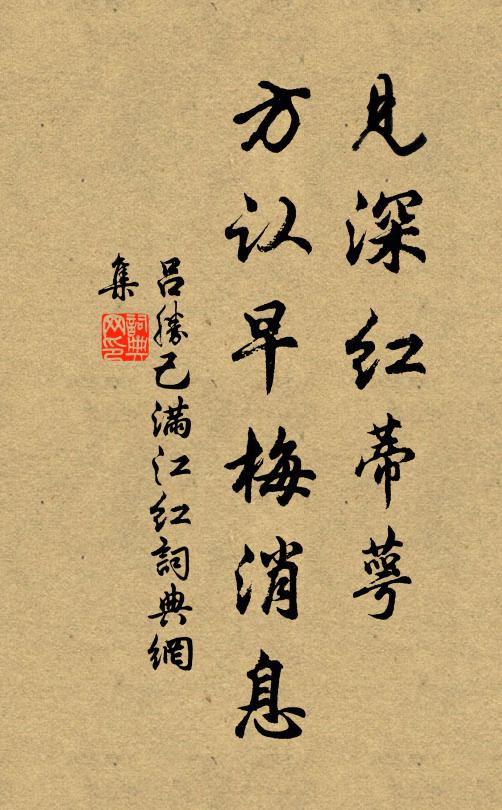 见深红蒂萼
方认早梅消息
吕勝己满江红詞典網
集
詞典网印